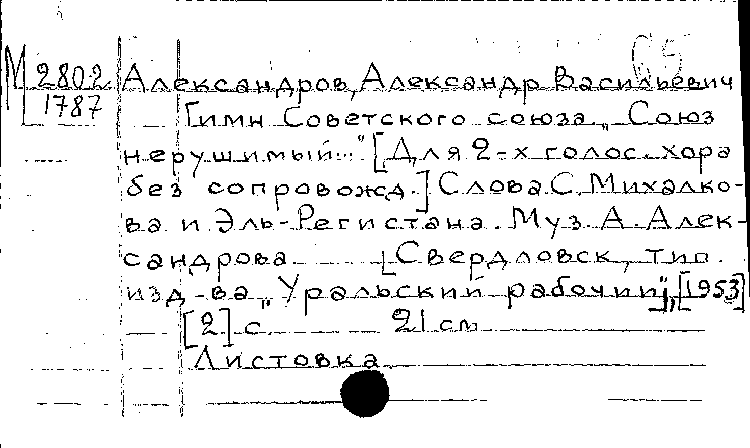 М 2802 Александров, Александр Васильевич
1787 Гимн Советского союза „Союз
нерушимый..." [Для 2-х голос. хора
без сопровожд.] Слова С. Михалко-
ва и Эль-Регистана. Муз. А. Алек-
сандрова. [Свердловск, тип.
изд-ва „Уральский рабочий", [1953]
[2] с. 21 см
Листовка